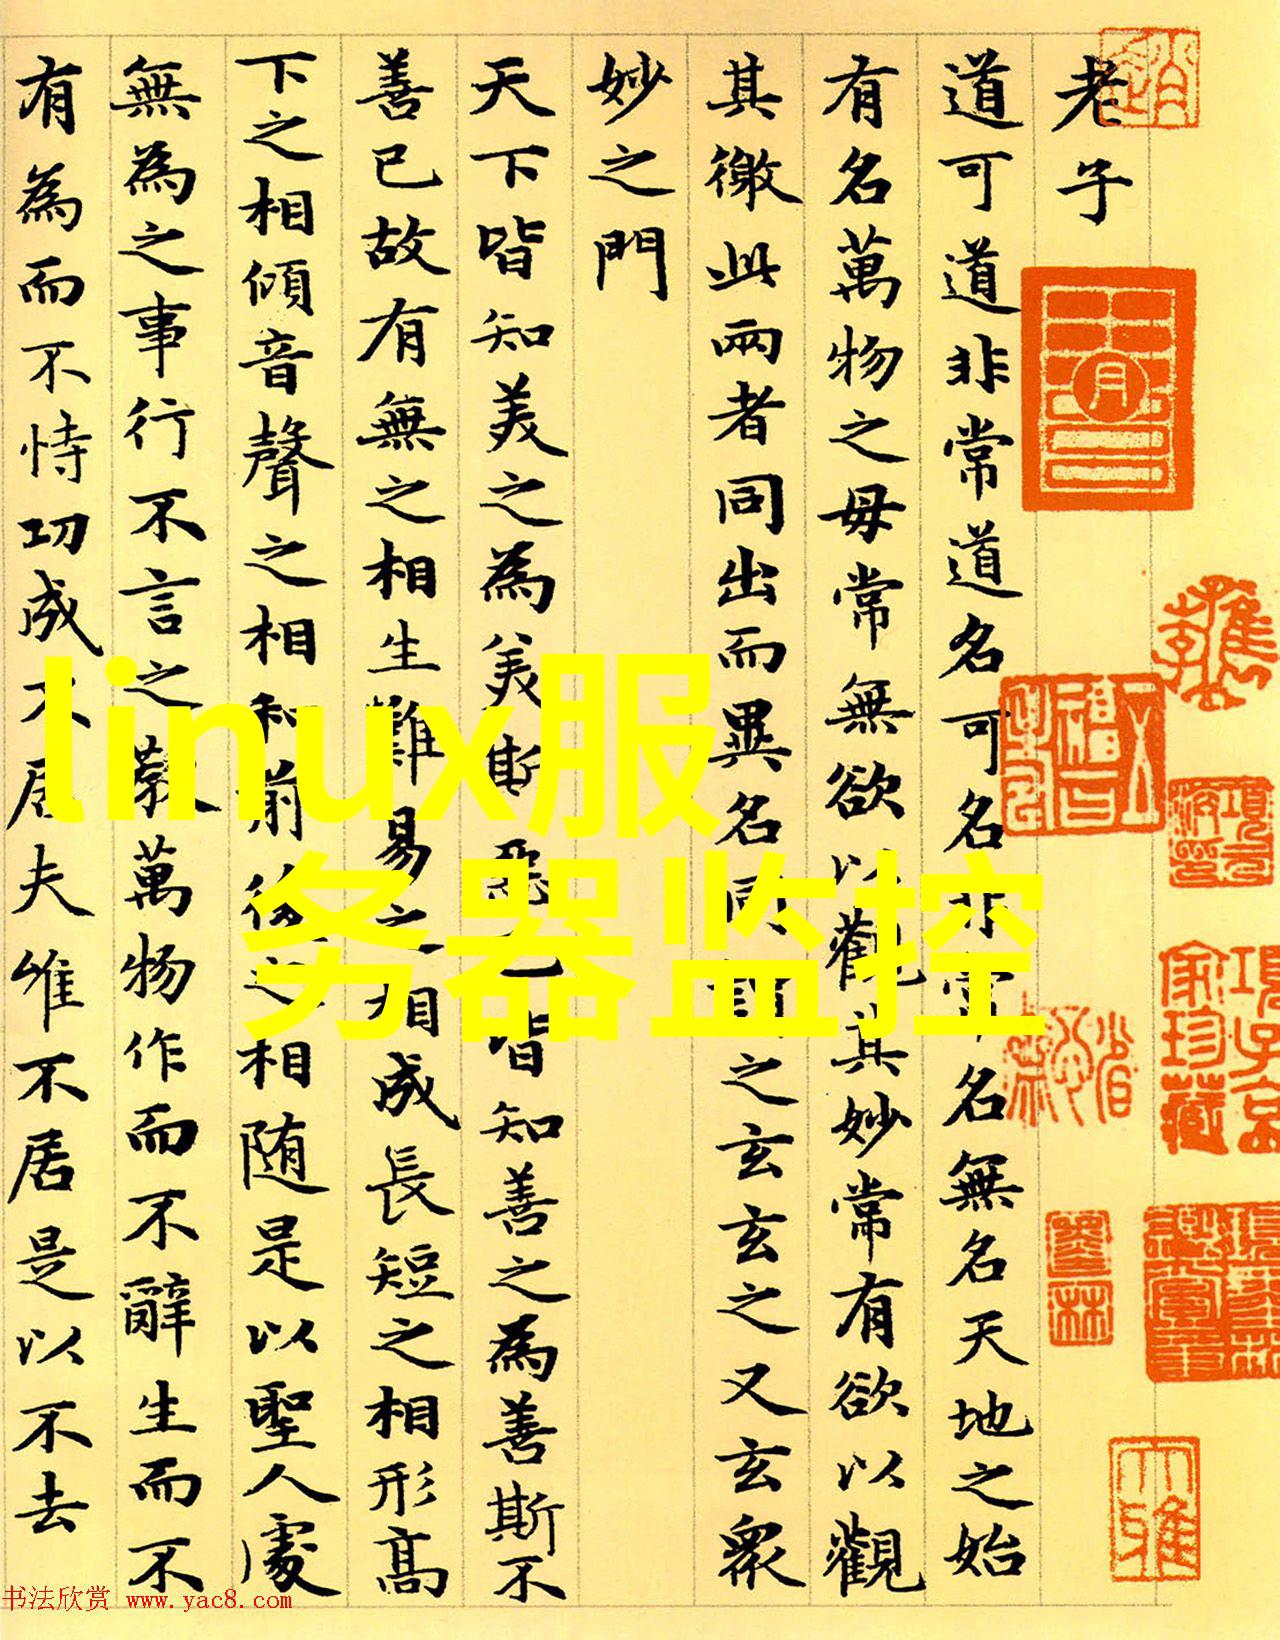 老子
道可道非常道名可名非常名無名天地之始
有名萬物之毋常無欲以觀其妙常有欲以觀
其徼此兩者同出而異名同謂之玄玄之又玄衆
妙之門
天下皆知美之為美斯惡已皆知善之為善斯不
善已故有無之相生難易之相成長短之相形高
下之相傾音聲之相和前後之相随是以聖人處
無為之事行不言之教萬物作而不辭生而不
有為而不恃功成不居夫唯不居是以不去
linux服
务器监控
項子京
家珍藏
书法欣赏 www.yac8.com